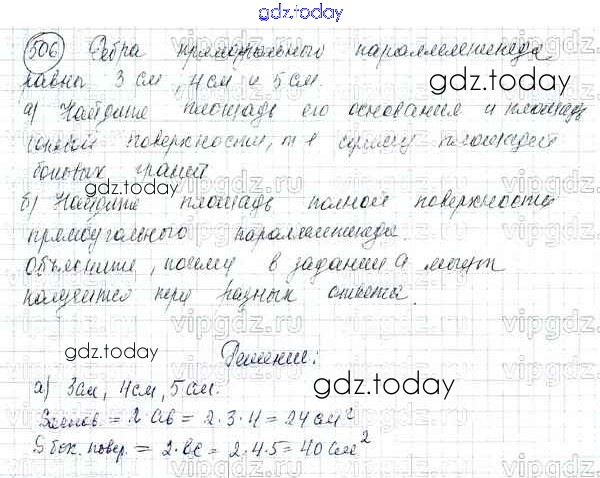 gdz.today
506 Ребра прямоугольного параллелепипеда
равны 3 см, 4 см и 5 см.
gdz.today
а) Найдите площадь его основания и площадь
боковой поверхности, т е сумму площадей
боковых граней
gdz.today
б) Найдите площадь полной поверхности
прямоугольного параллелепипеда.
Объясните, почему в задании а могут
получится три разных ответа.
gdz.today
Решение:
а) 3см, 4см, 5см.
gdz.today
Sоснов. = 2·ab = 2·3·4 = 24 см²
Sбок. повер. = 2·bc = 2·4·5 = 40 см²